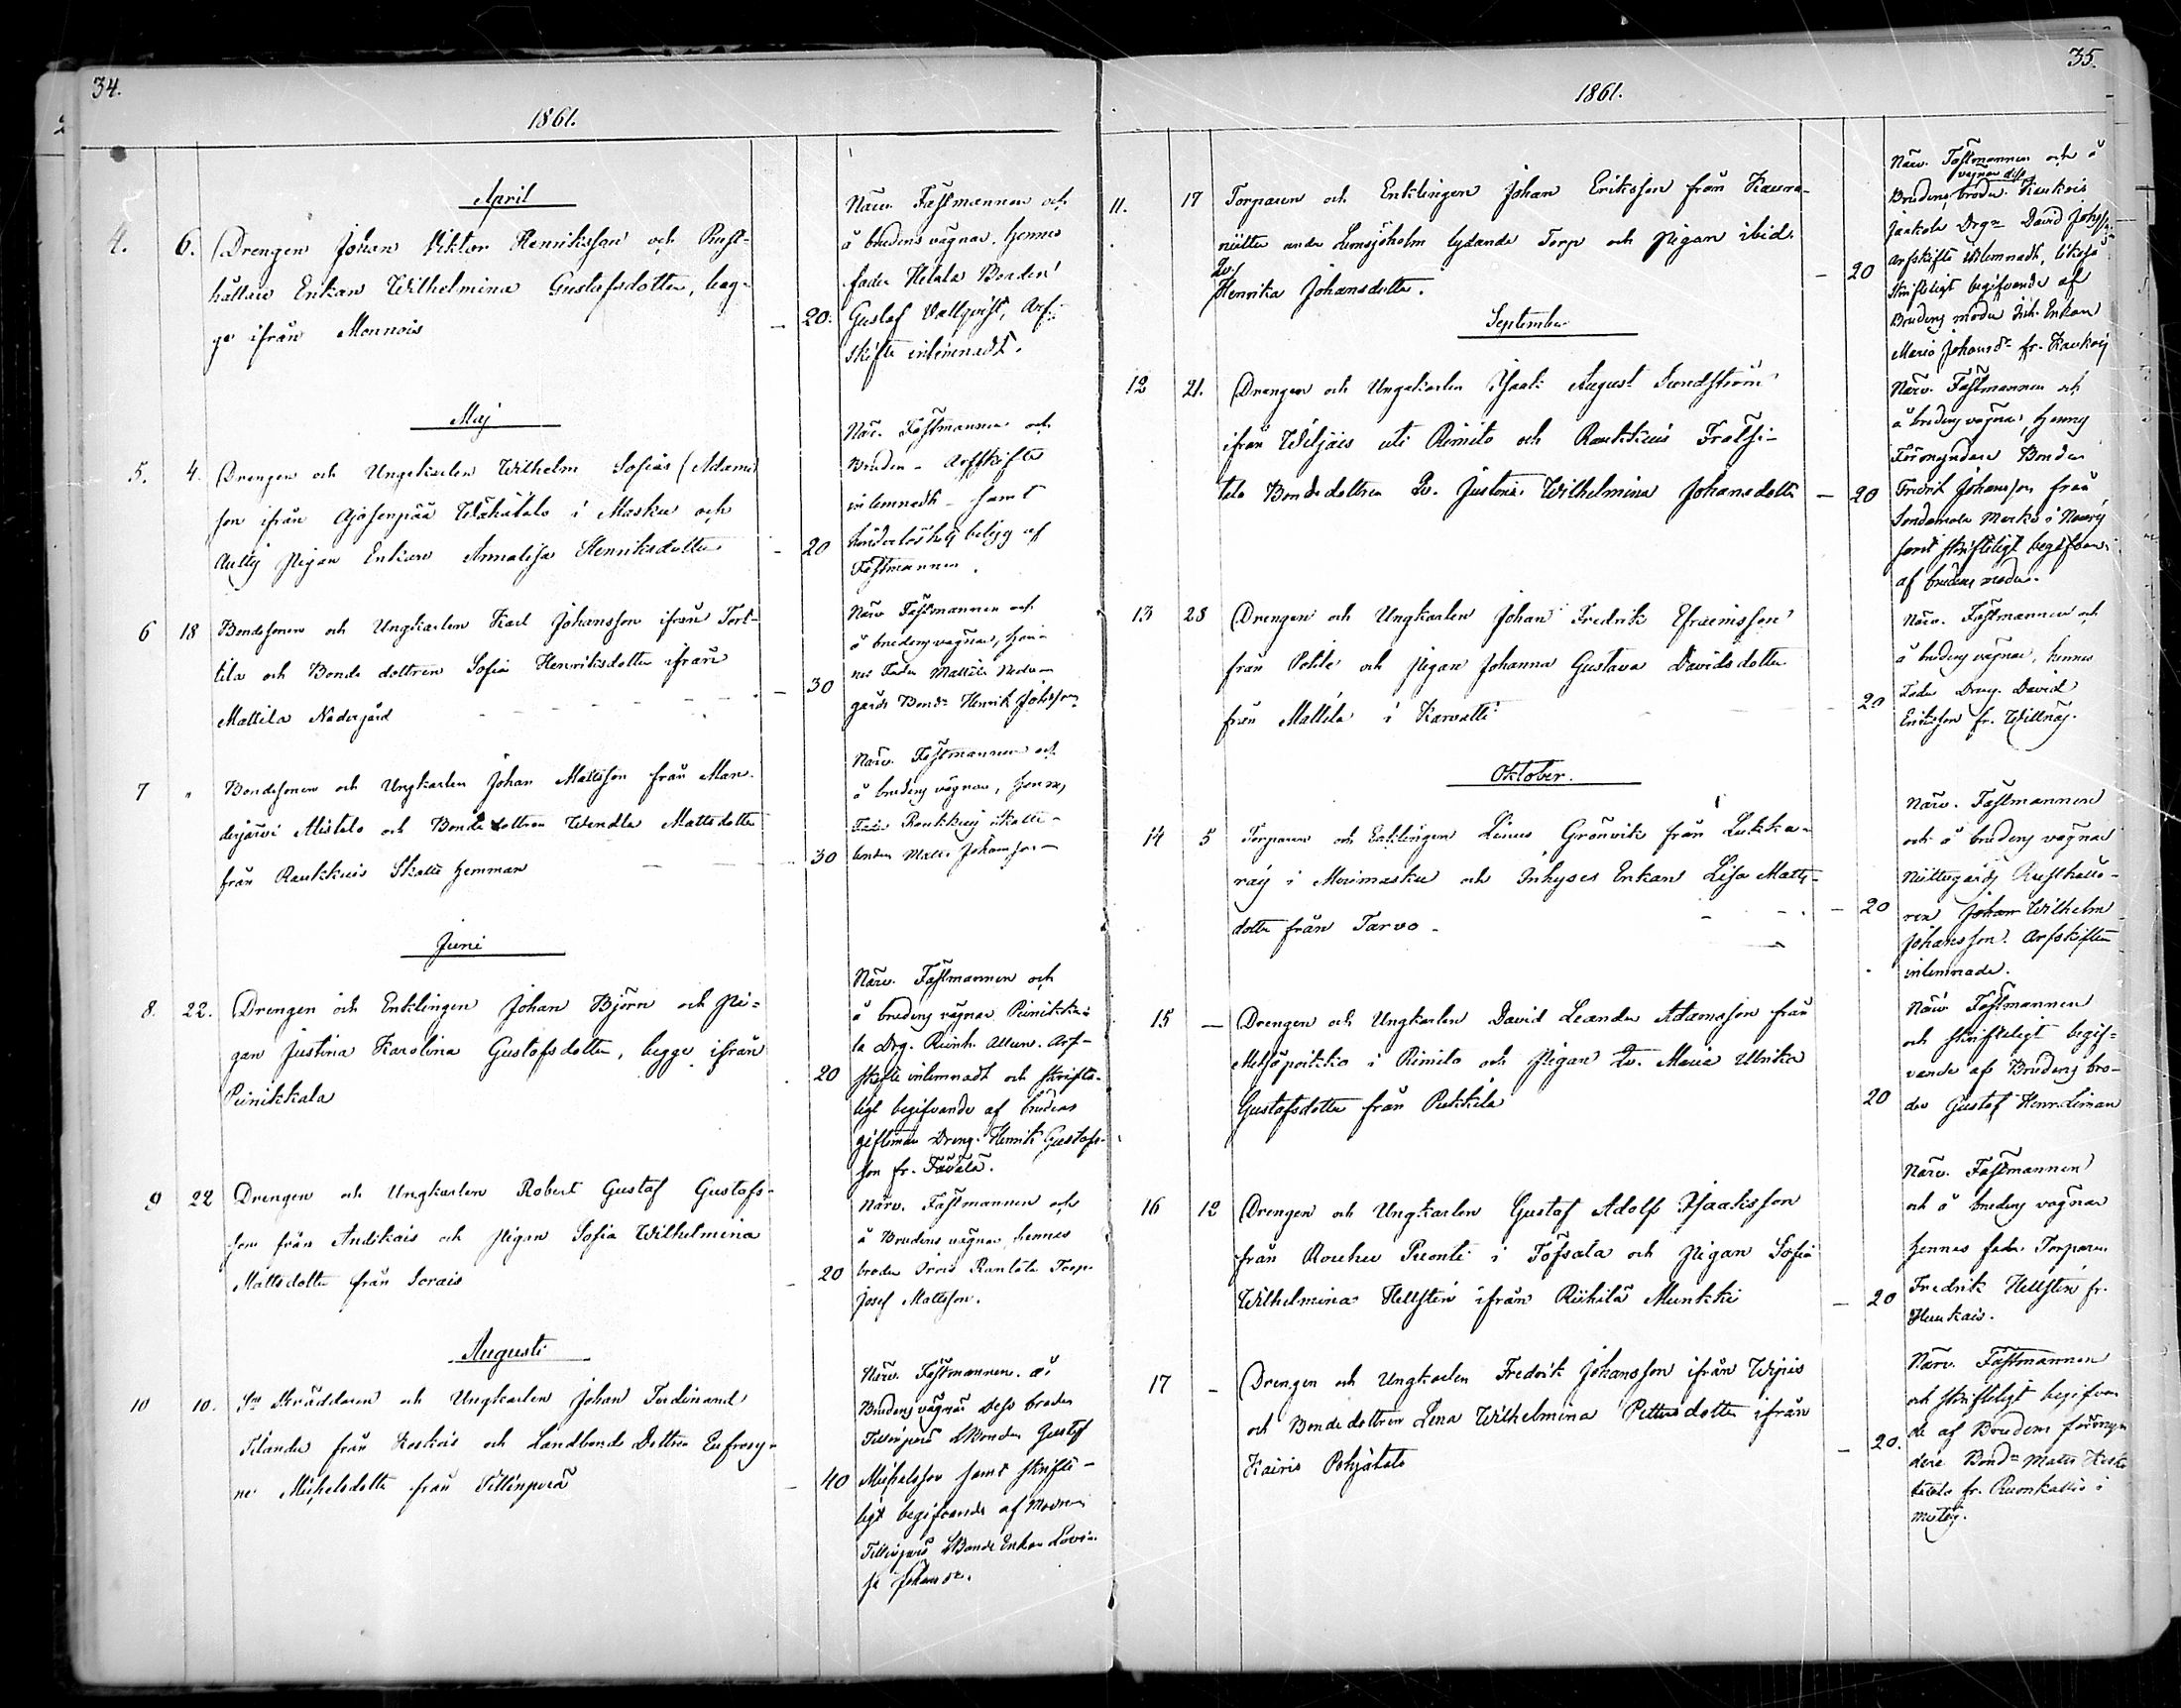 34.
1861.
April
4. 6. Drengen Johan Viktor Henriksson och Rust-
hållare Enkan Wilhelmina Gustafsdotter, beg-
ge ifrån Monnois — 20.
Närv. Fästmannen och
å brudens vägnar, hennes
fader Heikola Bonden
Gustaf Vallqvist, Arf-
skifte inlemnadt.
Maj
5. 4. Drengen och Ungkarlen Wilhelm Sofias (Adams)
son ifrån Ajosenpää Wähätalo i Masku och
Autty Pigan Enkan Annalisa Henriksdotter — 20
Närv. Fästmannen och
Bruden - Arfskifte
inlemnadt - samt
hinderlöshets belägg af
Fästmannen.
6 18 Bondesonen och Ungkarlen Karl Johansson ifrån Tort-
tila och Bonde dottren Sofia Henriksdotter ifrån
Mattila Nedergård — 30
Närv Fästmannen och
å brudens vägnar, hen-
nes Fader Mattila Neder-
gårds Bond Henrik Johansson
7 " Bondesonen och Ungkarlen Johan Mattsson från Man-
derjärvi Alistalo och Bonde dottren Wendla Mattsdotter
från Raukkuis Skatte hemman — 30
Närv. Fästmannen och
å brudens vägnar, hennes
Fader Raukkuis Skatte-
bonden Matts Johansson
Juni
8. 22. Drengen och Enklingen Johan Björn och Pi-
gan Justina Karolina Gustafsdotter, begge ifrån
Piinikkala 20
Närv. Fästmannen och
å brudens vägnar Piinikka-
la Drg. Reinh. Arf-
skifte inlemnadt och skrifte-
ligt begifvande af brudens
giftoman Dreng. Henrik Gustafs-
son fr. Tavala.
9 22 Drengen och Ungkarlen Robert Gustaf Gustafs-
son från Andikais och Pigan Sofia Wilhelmina
Mattsdotter från Sorais — 20
Närv. Fästmannen och
å Brudens vägnar, hennes
broder Torp.
Josef Mattsson.
Augusti
10 10. Skräddaren och Ungkarlen Johan Ferdinand
Telander från Koskis och Landbonde Dottren Eufrosy-
ne Michelsdotter från Tillinperä — 40
Närv. Fästmannen. å
Brudens vägnar dess broder
Tillinperä LBonden Gustaf
Michelsson samt skrifte-
ligt begifvande af Modren
Tillinperä LBonde Enkan Lovi-
sa Johansdr.
35.
1861.
11. 17 Torparen och Enklingen Johan Eriksson från Kaura-
niittu under Lemsjöholm lydande Torp och Pigan ibid.
Qv.
Henrika Johansdotter. — 20
Närv. Fästmannen och å
vägnar dess
Brudens broder Kaukois
Jaakola Drgn David Johansson
arfskifte inlemnadt, likaså
skriftligt begifvande af
Brudens moder Inh. Enkan
Maria Johansdr fr. Kaukois
September
12 21. Drengen och Ungkarlen Isaak August Sundström
ifrån Wiljais uti Rimito och Raukkuis Frälsi-
talo Bonde dottren Qv. Justina Wilhelmina Johansdotter — 20
Närv. Fästmannen och
å brudens vägnar, hennes
Förmyndare Bonden
Fredrik Johansson från
samt skriftligt begifvande
af brudens moder.
13 28 Drengen och Ungkarlen Johan Fredrik Efraimsson
från Pehte och Pigan Johanna Gustava Davidsdotter
från Mattila i Karvatti — 20
Närv. Fästmannen och
å brudens vägnar, hennes
Fader Dreng. David
Eriksson fr. Willnäs.
Oktober.
14 5 Torparen och Enklingen Linus Grönvik från Lukka-
räis i Merimasku och Inhyses Enkan Lisa Matts-
dotter från Tarvo — 20
Närv. Fästmannen
och å brudens vägnar
Niittugårds Rusthålla-
ren Johan Wilhelm
Johansson. Arfskiften
inlemnade.
15 — Drengen och Ungkarlen David Leander Adamsson från
Metsäpoikko i Rimito och Pigan Qv. Maria Ulrika
Gustafsdotter från Pukkila 20
Närv Fästmannen
och skriftligt begif-
vande af Brudens bro-
der Gustaf Henr. Liman
16 12 Drengen och Ungkarlen Gustaf Adolf Isaaksson
från Rouhu Puonti i Töfsala och Pigan Sofia
Wilhelmina Hellsten ifrån Riihilä Munkki — 20
Närv. Fästmannen
och å brudens vägnar
hennes fader Torparen
Fredrik Hellsten fr.
Hunkais.
17 — Drengen och Ungkarlen Fredrik Johansson ifrån Wijais
och Bonde dottren Lena Wilhelmina Pettersdotter ifrån
Kairis Pohjatalo — 20.
Närv. Fästmannen
och skriftligt begifvan
de af Brudens förmyn
dere Bondn Matts
talo fr. Ruonkallio i